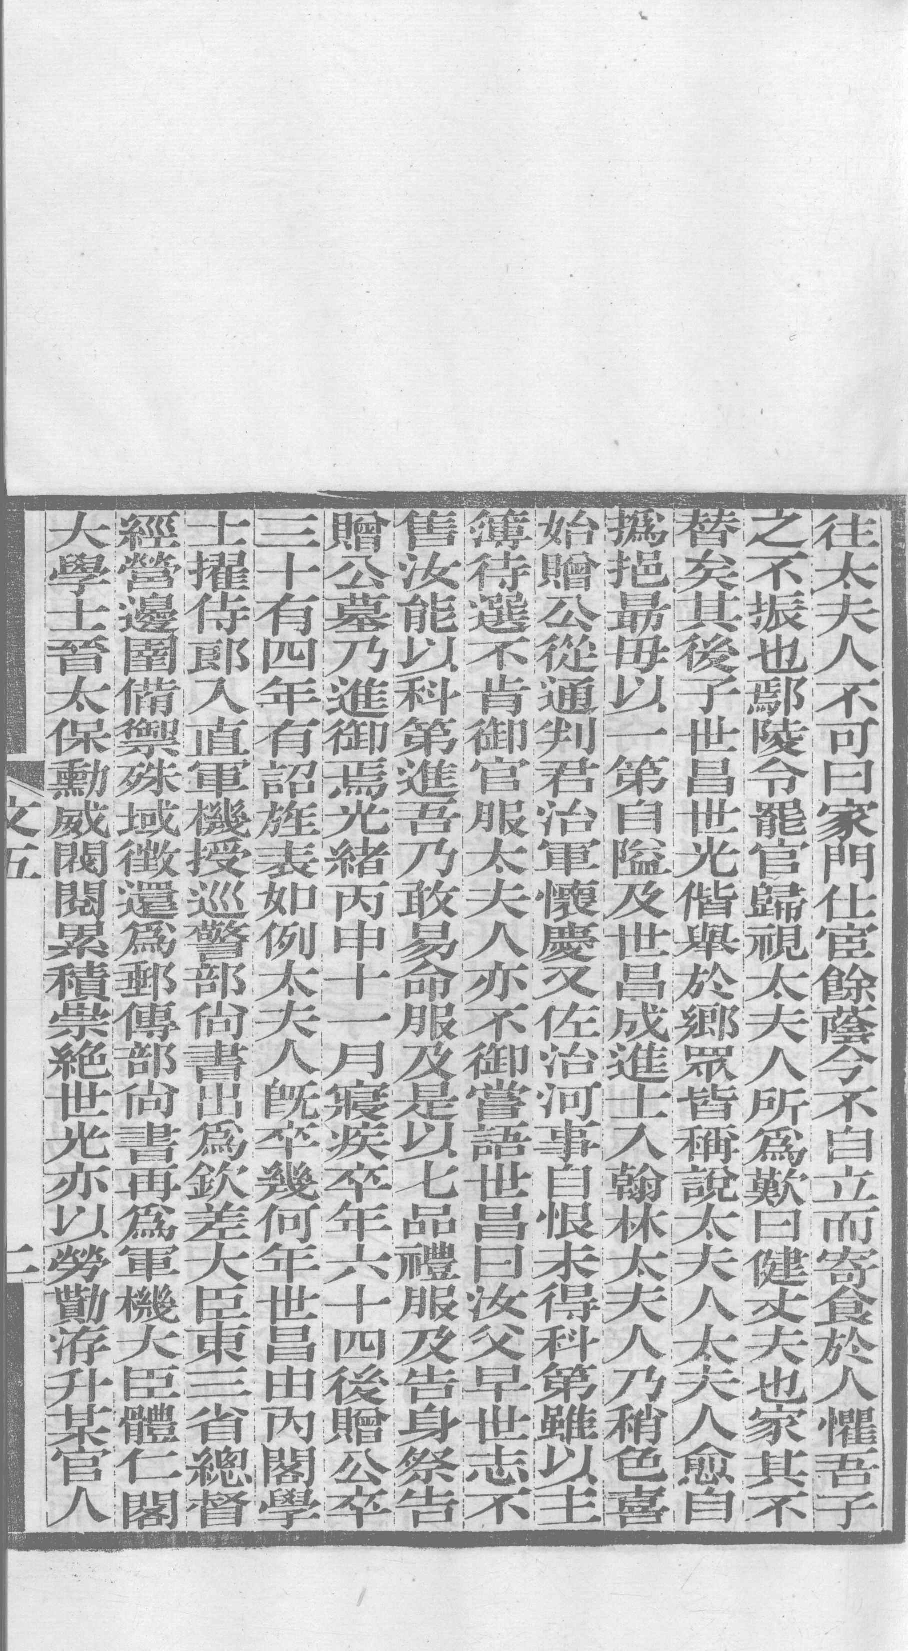 往太夫人不可曰家門仕宦餘蔭今不自立而寄食於人懼吾子
之不振也鄢陵令罷官歸視太夫人所爲歎曰健丈夫也家其不
替矣其後子世昌世光偕舉於鄉眾皆稱說太夫人太夫人愈自
撝挹勗毋以一第自隘及世昌成進士入翰林太夫人乃稍色喜
始贈公從通判君治軍懷慶又佐治河事自恨未得科第雖以主
簿待選不肯御官服太夫人亦不御嘗語世昌曰汝父早世志不
售汝能以科第進吾乃敢易命服及是以七品禮服及告身祭告
贈公墓乃進御焉光緒丙申十一月寢疾卒年六十四後贈公卒
三十有四年有詔旌表如例太夫人既卒幾何年世昌由內閣學
士擢侍郎入直軍機授巡警部尙書出爲欽差大臣東三省總督
經營邊圉備禦殊域徵還爲郵傳部尙書再爲軍機大臣體仁閣
大學士晉太保勳威閥閱累積崇絕世光亦以勞勩洊升某官人
文五
二